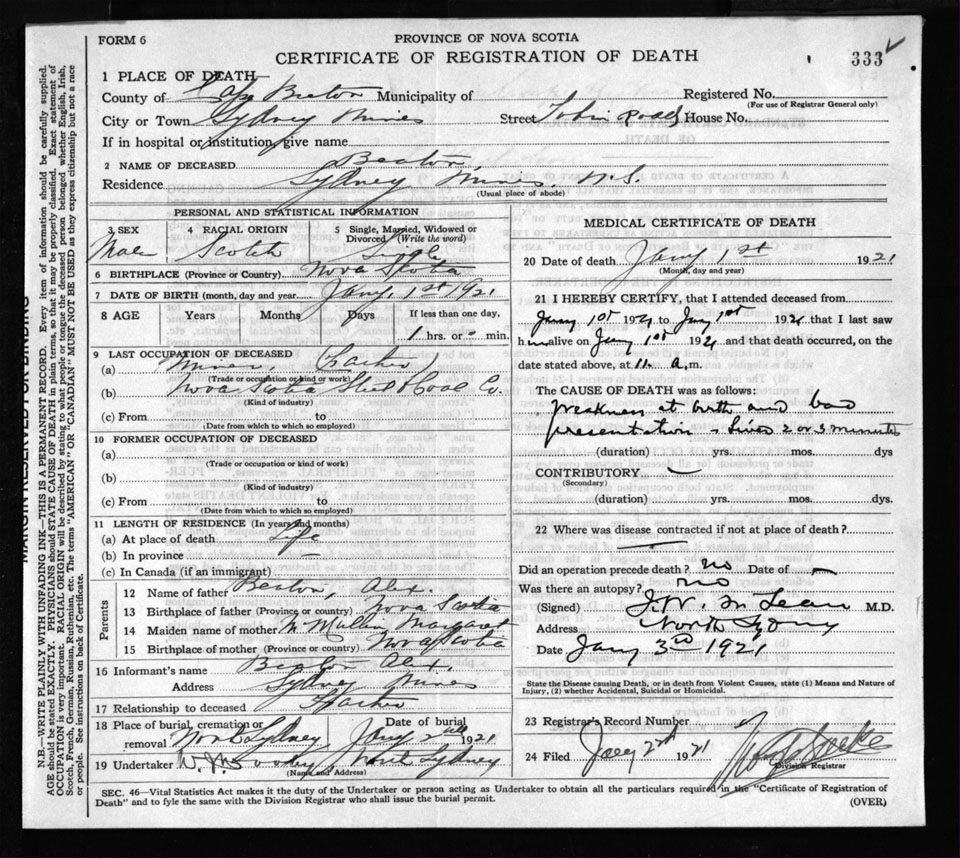 FORM 6
PROVINCE OF NOVA SCOTIA
CERTIFICATE OF REGISTRATION OF DEATH
333
1 PLACE OF DEATH
County of Cape Breton Municipality of
Registered No.
(For use of Registrar General only)
City or Town Sydney Mines Street Tobin Road House No.
If in hospital or institution, give name
2 NAME OF DECEASED Beaton,
Residence Sydney Mines, N.S.
(Usual place of abode)
PERSONAL AND STATISTICAL INFORMATION
3 SEX 4 RACIAL ORIGIN 5 Single, Married, Widowed or Divorced (Write the word)
Male Scotch Single
6 BIRTHPLACE (Province or Country) Nova Scotia
7 DATE OF BIRTH (month, day and year) Jany, 1st 1921
8 AGE Years Months Days If less than one day,
1 hrs. or min.
9 LAST OCCUPATION OF DECEASED
(a) Miner, Father
(Trade or occupation or kind of work)
(b) Nova Scotia Steel & Coal Co.
(Kind of industry)
(c) From to
(Date from which to which so employed)
10 FORMER OCCUPATION OF DECEASED
(a)
(Trade or occupation or kind of work)
(b)
(Kind of industry)
(c) From to
(Date from which to which so employed)
11 LENGTH OF RESIDENCE (In years and months)
(a) At place of death Life
(b) In province —
(c) In Canada (if an immigrant)
Parents
12 Name of father Beaton, Alex.
13 Birthplace of father (Province or country) Nova Scotia
14 Maiden name of mother McMullin Margaret
15 Birthplace of mother (Province or country) Nova Scotia
16 Informant's name Beaton Alex.
Address Sydney Mines
17 Relationship to deceased Father
18 Place of burial, cremation or removal North Sydney Date of burial Jany 2nd 1921
19 Undertaker North Sydney
(Name and Address)
MEDICAL CERTIFICATE OF DEATH
20 Date of death Jany 1st 1921
(Month, day and year)
21 I HEREBY CERTIFY, that I attended deceased from
Jany 1st 1921 to Jany 1st 1921 that I last saw
him alive on Jany 1st 1921 and that death occurred, on the
date stated above, at 11 a.m.
The CAUSE OF DEATH was as follows:
Weakness at birth and bad
presentation - lived 2 or 3 minutes
(duration) yrs. mos. dys
CONTRIBUTORY
(Secondary)
(duration) yrs. mos. dys.
22 Where was disease contracted if not at place of death?
Did an operation precede death? no Date of —
Was there an autopsy? no
(Signed) McLean M.D.
Address North Sydney
Date Jany 3rd 1921
State the Disease causing Death, or in death from Violent Causes, state (1) Means and Nature of
Injury, (2) whether Accidental, Suicidal or Homicidal.
23 Registrar's Record Number
24 Filed Jany 2nd 1921
Division Registrar
SEC. 46—Vital Statistics Act makes it the duty of the Undertaker or person acting as Undertaker to obtain all the particulars required in the "Certificate of Registration of
Death" and to fyle the same with the Division Registrar who shall issue the burial permit.
(OVER)
MARGIN RESERVED FOR BINDING
N.B.—WRITE PLAINLY WITH UNFADING INK—THIS IS A PERMANENT RECORD. Every item of information should be carefully supplied.
AGE should be stated EXACTLY. PHYSICIANS should STATE CAUSE OF DEATH in plain terms, so that it may be properly classified. Exact statement of
OCCUPATION is very important. RACIAL ORIGIN will be described by stating to what people or tongue the deceased person belonged whether English, Irish,
Scotch, French, German, Russian, Ruthenian, etc. The terms "AMERICAN" OR "CANADIAN" MUST NOT BE USED as they express citizenship but not a race
or people. See instructions on back of Certificate.